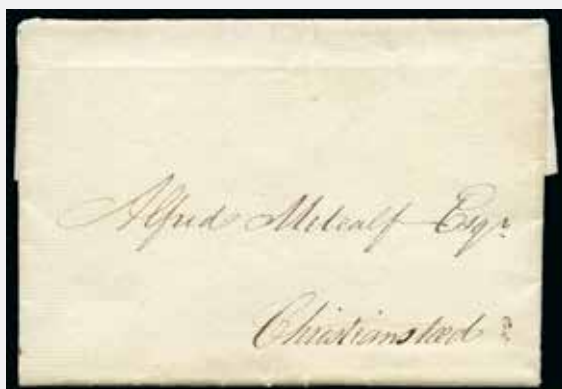 Alfred Metcalf Esqr
Christiansted